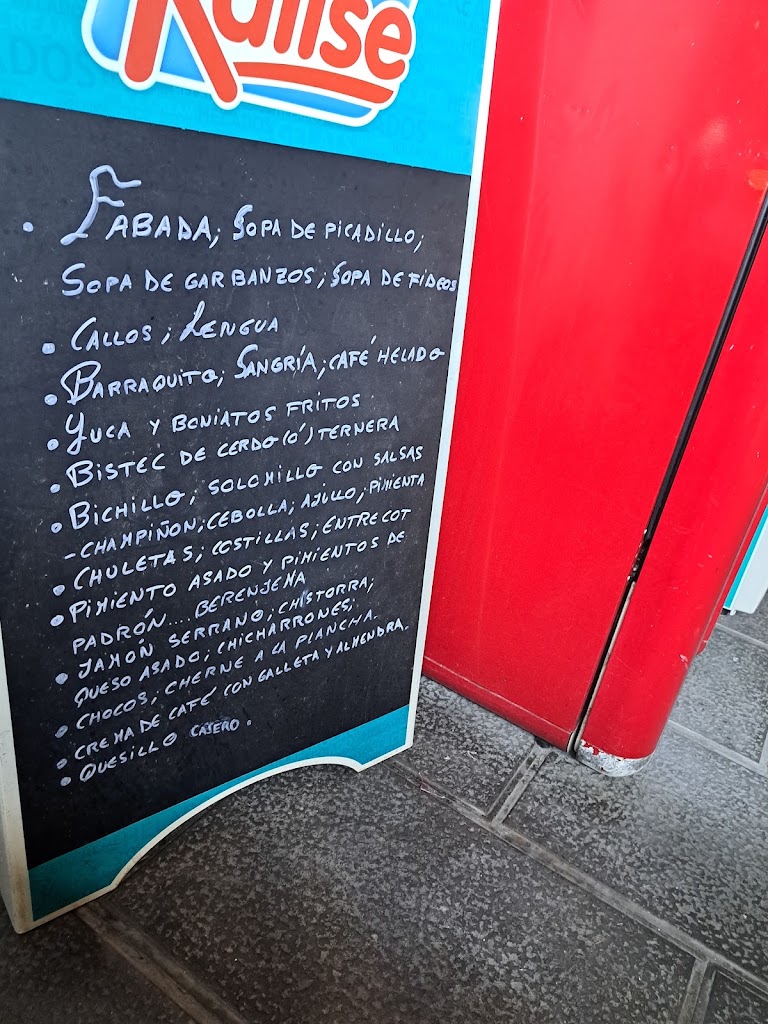 Kalise
• FABADA; SOPA DE PICADILLO;
SOPA DE GARBANZOS; SOPA DE FIDEOS
• CALLOS; LENGUA
• BARRAQUITO; SANGRÍA; CAFÉ HELADO
• YUCA Y BONIATOS FRITOS
• BISTEC DE CERDO (O') TERNERA
• BICHILLO; SOLOMILLO CON SALSAS
- CHAMPIÑON; CEBOLLA; AJILLO; PIMIENTA
• CHULETAS; COSTILLAS; ENTRECOT
• PIMIENTO ASADO Y PIMIENTOS DE
PADRÓN.... BERENJENA
• JAMÓN SERRANO; CHISTORRA;
QUESO ASADO; CHICHARRONES;
• CHOCOS; CHERNE A LA PLANCHA.
• CREMA DE CAFÉ CON GALLETA Y ALMENDRA.
• QUESILLO CASERO.